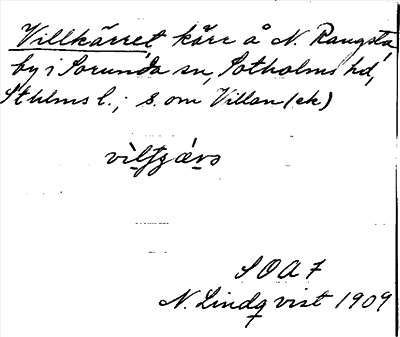 Villkärret, kärr å N. Rangsta
by i Sorunda sn, Sotholms hd,
Sthlms l.; s. om Villan (ek)
SOA 7
N. Lindqvist 1909